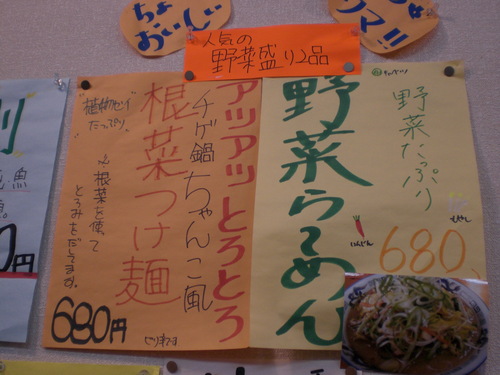 ちょ
おいしい
ウマ!!
人気の
野菜盛り2品
アツアツ とろとろ
チゲ鍋ちゃんこ風
根菜つけ麺
たっぷり
根菜を使って
とろみをだしてます。
680円
野菜らーめん
野菜たっぷり
にんじん
680